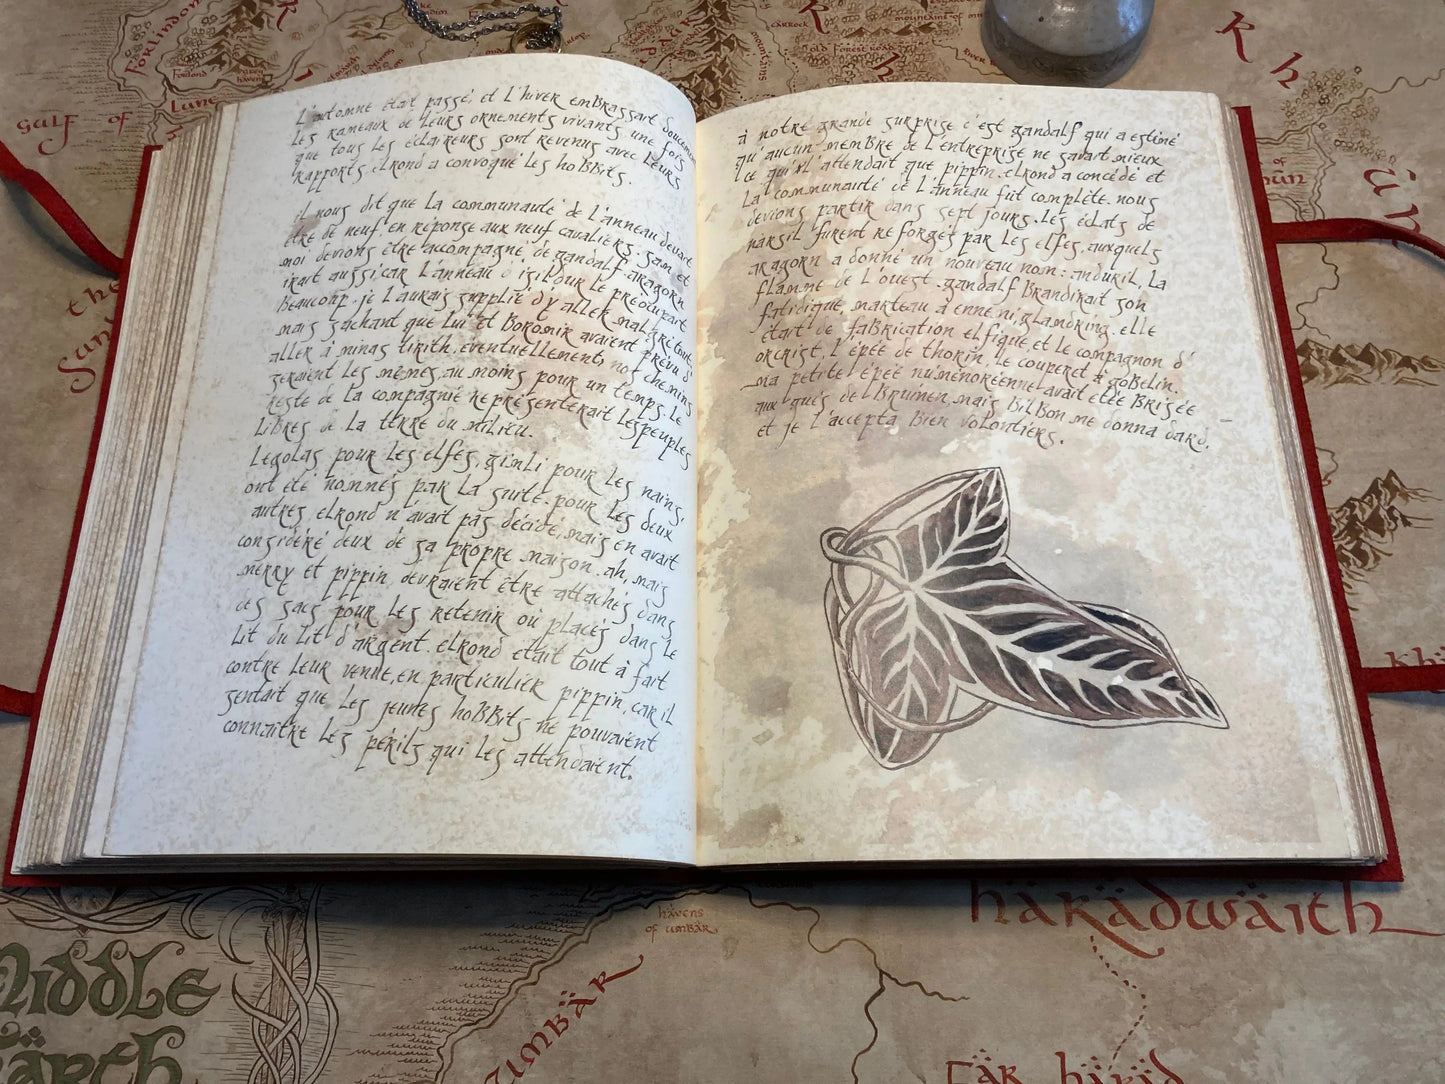 L'automne était passé, et l'hiver embrassait
les rameaux de leurs ornements vivants une fois
que tous les éclaireurs sont revenus avec leurs
rapports. elrond a convoqué les hobbits.
il nous dit que la communauté de l'anneau devait
être de neuf en réponse aux neuf cavaliers. sam et
moi devions être accompagné, de gandalf. aragorn
irait aussi, car l'anneau d'isildur le préocupait
beaucoup. je l'aurais supplié d'y aller malgré tout,
mais sachant que lui et boromir avaient prévu d'
aller à minas tirith, éventuellement, nos chemins
seraient les mêmes, au moins pour un temps. le
reste de la compagnie représenterait les peuples
libres de la terre du milieu.
Legolas pour les elfes, gimli pour les nains,
ont été nommés par la suite. pour les deux
autres, elrond n'avait pas décidé, mais en avait
considéré deux de sa propre maison. ah, mais
merry et pippin devraient être attachés dans
des sacs pour les retenir où placés dans le
lit du lit d'argent. elrond était tout à fait
contre leur venue, en particulier pippin, car il
sentait que les jeunes hobbits ne pouvaient
connaître les périls qui les attendaient.
à notre grande surprise c'est gandalf qui a estimé
qu'aucun membre de l'entreprise ne savait mieux
ce qui l'attendait que pippin. elrond a concédé et
la communauté de l'anneau fut complète. nous
devions partir dans sept jours. les éclats de
narsil furent reforgés par les elfes, auxquels
aragorn a donné un nouveau nom: anduril, la
flamme de l'ouest. gandalf brandirait son
fatidique, marteau à ennemi glamdring. elle
était de fabrication elfique, et le compagnon d'
orcrist, l'épée de thorin, le couperet à gobelin.
ma petite épée numénoréenne avait étée brisée
aux gués de bruinen, mais bilbon me donna dard,
et je l'accepta bien volontiers.
forlindon
forlond
Lune
gulf of
carrock
old forest road
mountains of
Rh
the
havens
of umbar
umbar
härädwäith
fär häräd
khä
middle
eärth